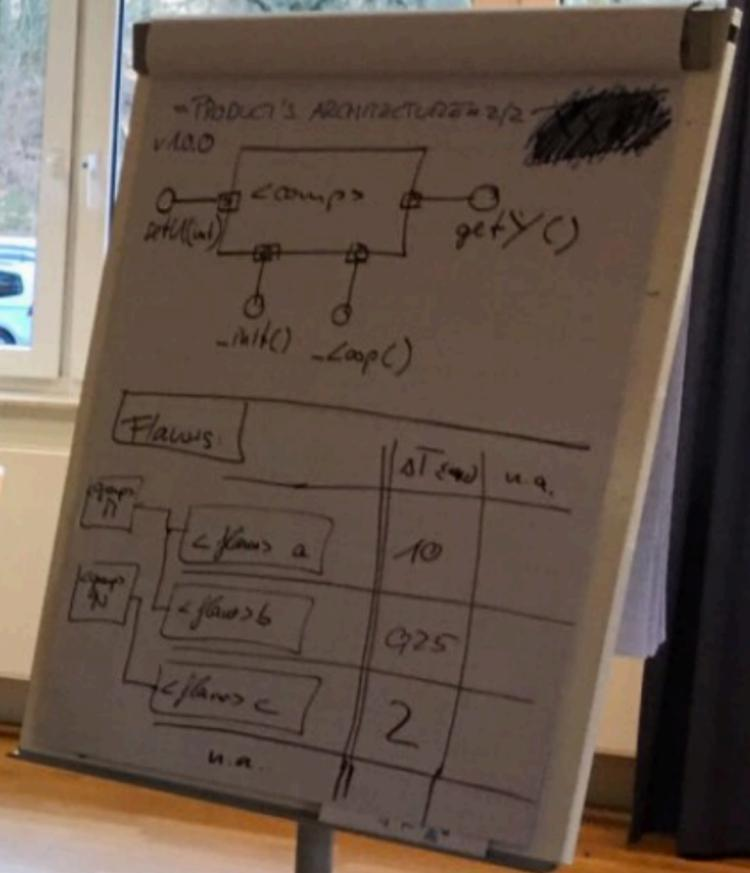 - PRODUCT'S ARCHITECTURE - 2/2 -
v1.0.0
<comp>
setU(int)
getY()
_init()
_Loop()
Flaws.
n.a.
<comp>
<flaw> a
10
<comp>
N
<flaw> b
0,25
<flaw> c
2
n.a.